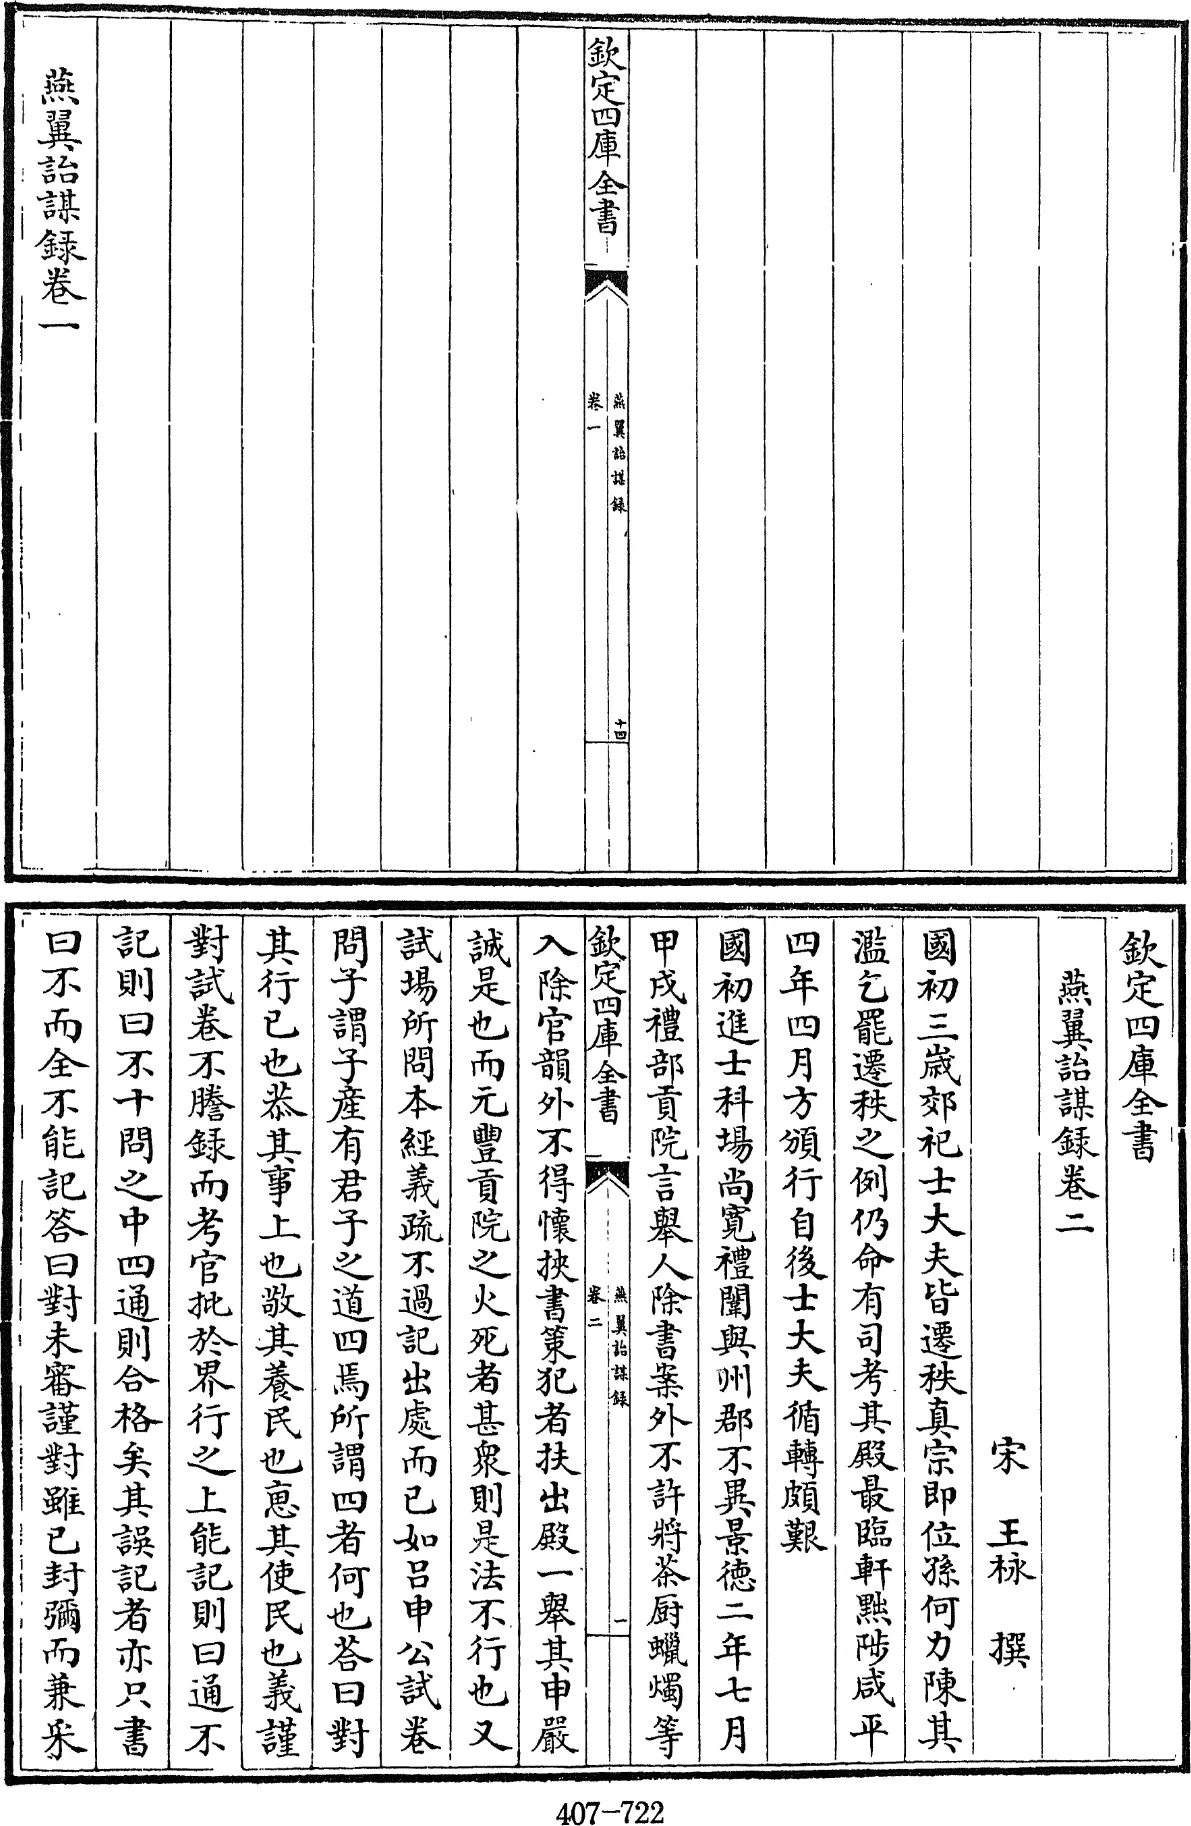 欽定四庫全書
燕翼詒謀録
卷一
十四
燕翼詒謀録卷一
欽定四庫全書
燕翼詒謀録卷二
宋 王栐 撰
國初三歲郊祀士大夫皆遷秩真宗即位孫何力陳其
濫乞罷遷秩之例仍命有司考其殿最臨軒㸃陟咸平
四年四月方頒行自後士大夫循轉頗艱
國初進士科場尚寛禮闈與州郡不異景德二年七月
甲戌禮部貢院言舉人除書案外不許將茶厨蠟燭等
欽定四庫全書
燕翼詒謀録
卷二
一
入除官韻外不得懷挾書策犯者扶出殿一舉其申嚴
誠是也而元豐貢院之火死者甚衆則是法不行也又
試場所問本經義疏不過記出處而已如吕申公試卷
問子謂子産有君子之道四焉所謂四者何也答曰對
其行已也恭其事上也敬其養民也惠其使民也義謹
對試卷不謄録而考官批於界行之上能記則曰通不
記則曰不十問之中四通則合格矣其誤記者亦只書
曰不而全不能記答曰對未審謹對雖已封彌而兼采
407-722